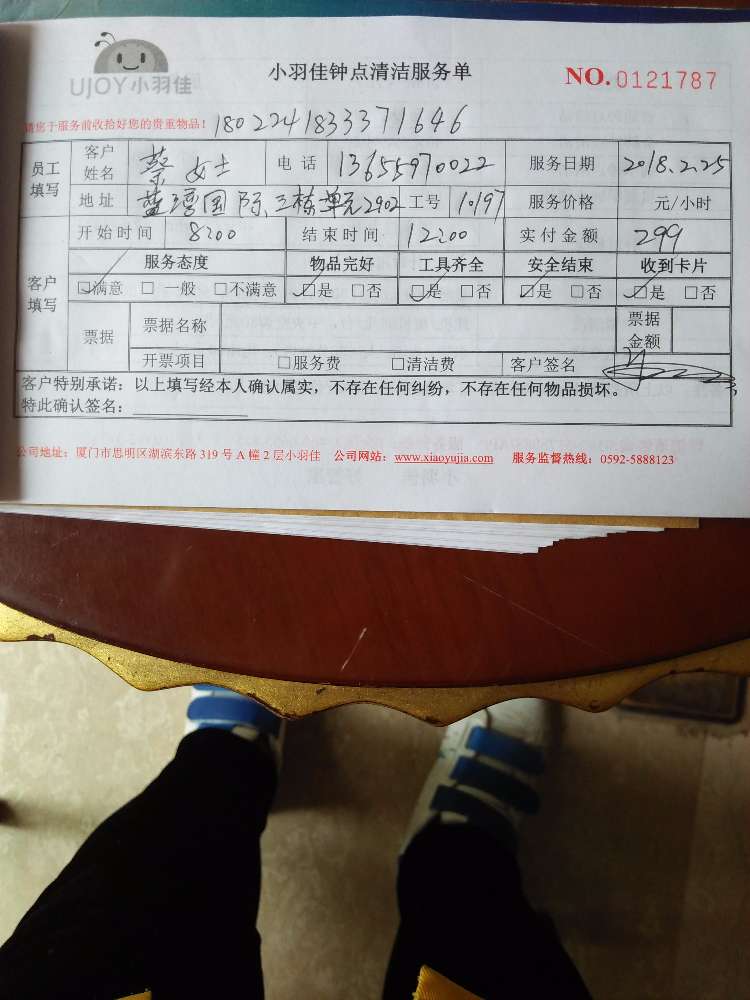 UJOY小羽佳
小羽佳钟点清洁服务单
NO.0121787
请您于服务前收拾好您的贵重物品! 180224183371646
员工填写 客户姓名 蔡女士 电话 13655970022 服务日期 2018.2.25
地址 蓝湾国际三栋单元2902 工号 10197 服务价格 元/小时
开始时间 8:00 结束时间 12:00 实付金额 299
客户填写 服务态度 物品完好 工具齐全 安全结束 收到卡片
☑满意 □一般 □不满意 ☑是 □否 ☑是 □否 ☑是 □否 ☑是 □否
票据 票据名称 票据金额
开票项目 □服务费 □清洁费 客户签名
客户特别承诺:以上填写经本人确认属实,不存在任何纠纷,不存在任何物品损坏。
特此确认签名:
公司地址:厦门市思明区湖滨东路 319 号 A 幢 2 层小羽佳 公司网站:www.xiaoyujia.com 服务监督热线:0592-5888123